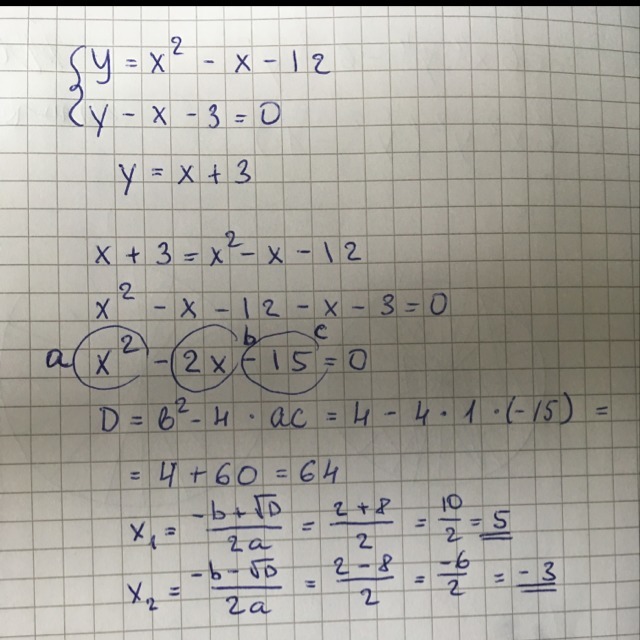 { y = x² - x - 12
y - x - 3 = 0
y = x + 3
x + 3 = x² - x - 12
x² - x - 12 - x - 3 = 0
a x² - 2x b - 15 c = 0
D = b² - 4 · ac = 4 - 4 · 1 · (-15) =
= 4 + 60 = 64
x₁ = (-b + √D)/2a = (2 + 8)/2 = 10/2 = 5
x₂ = (-b - √D)/2a = (2 - 8)/2 = -6/2 = -3